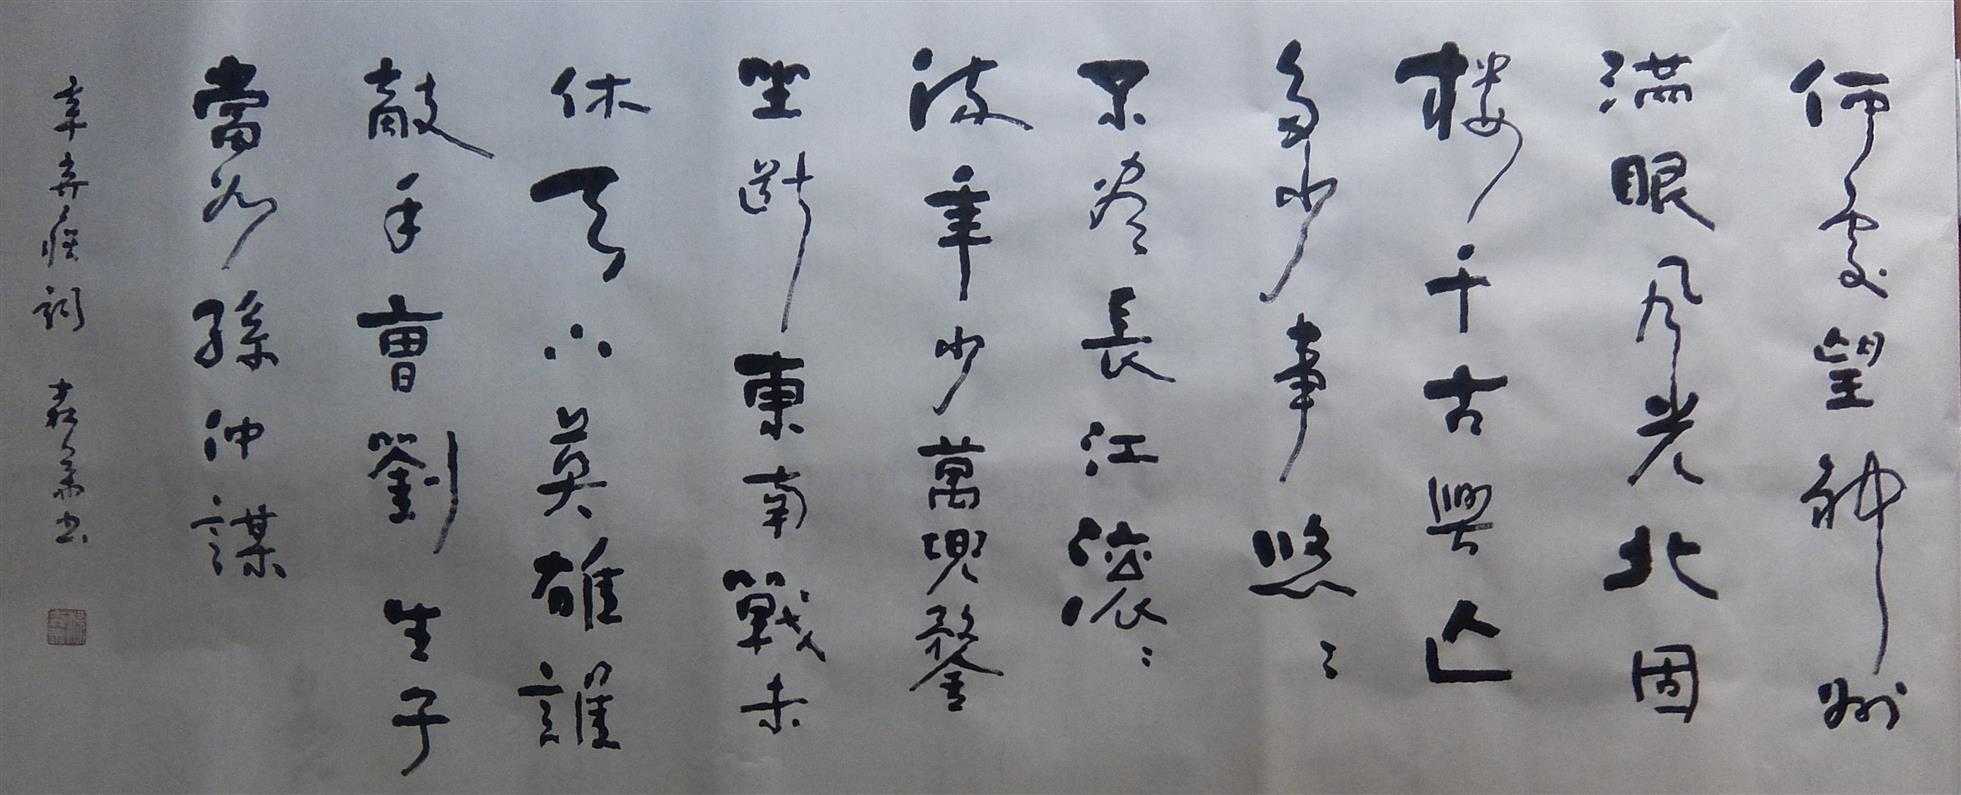 何處望神州
滿眼風光北固
楼千古興亡
多少事悠〻
不盡長江滚〻
流年少萬兜鍪
坐斷東南戰未
休天下英雄誰
敵手曹劉生子
當如孫仲謀
辛弃疾詞 书